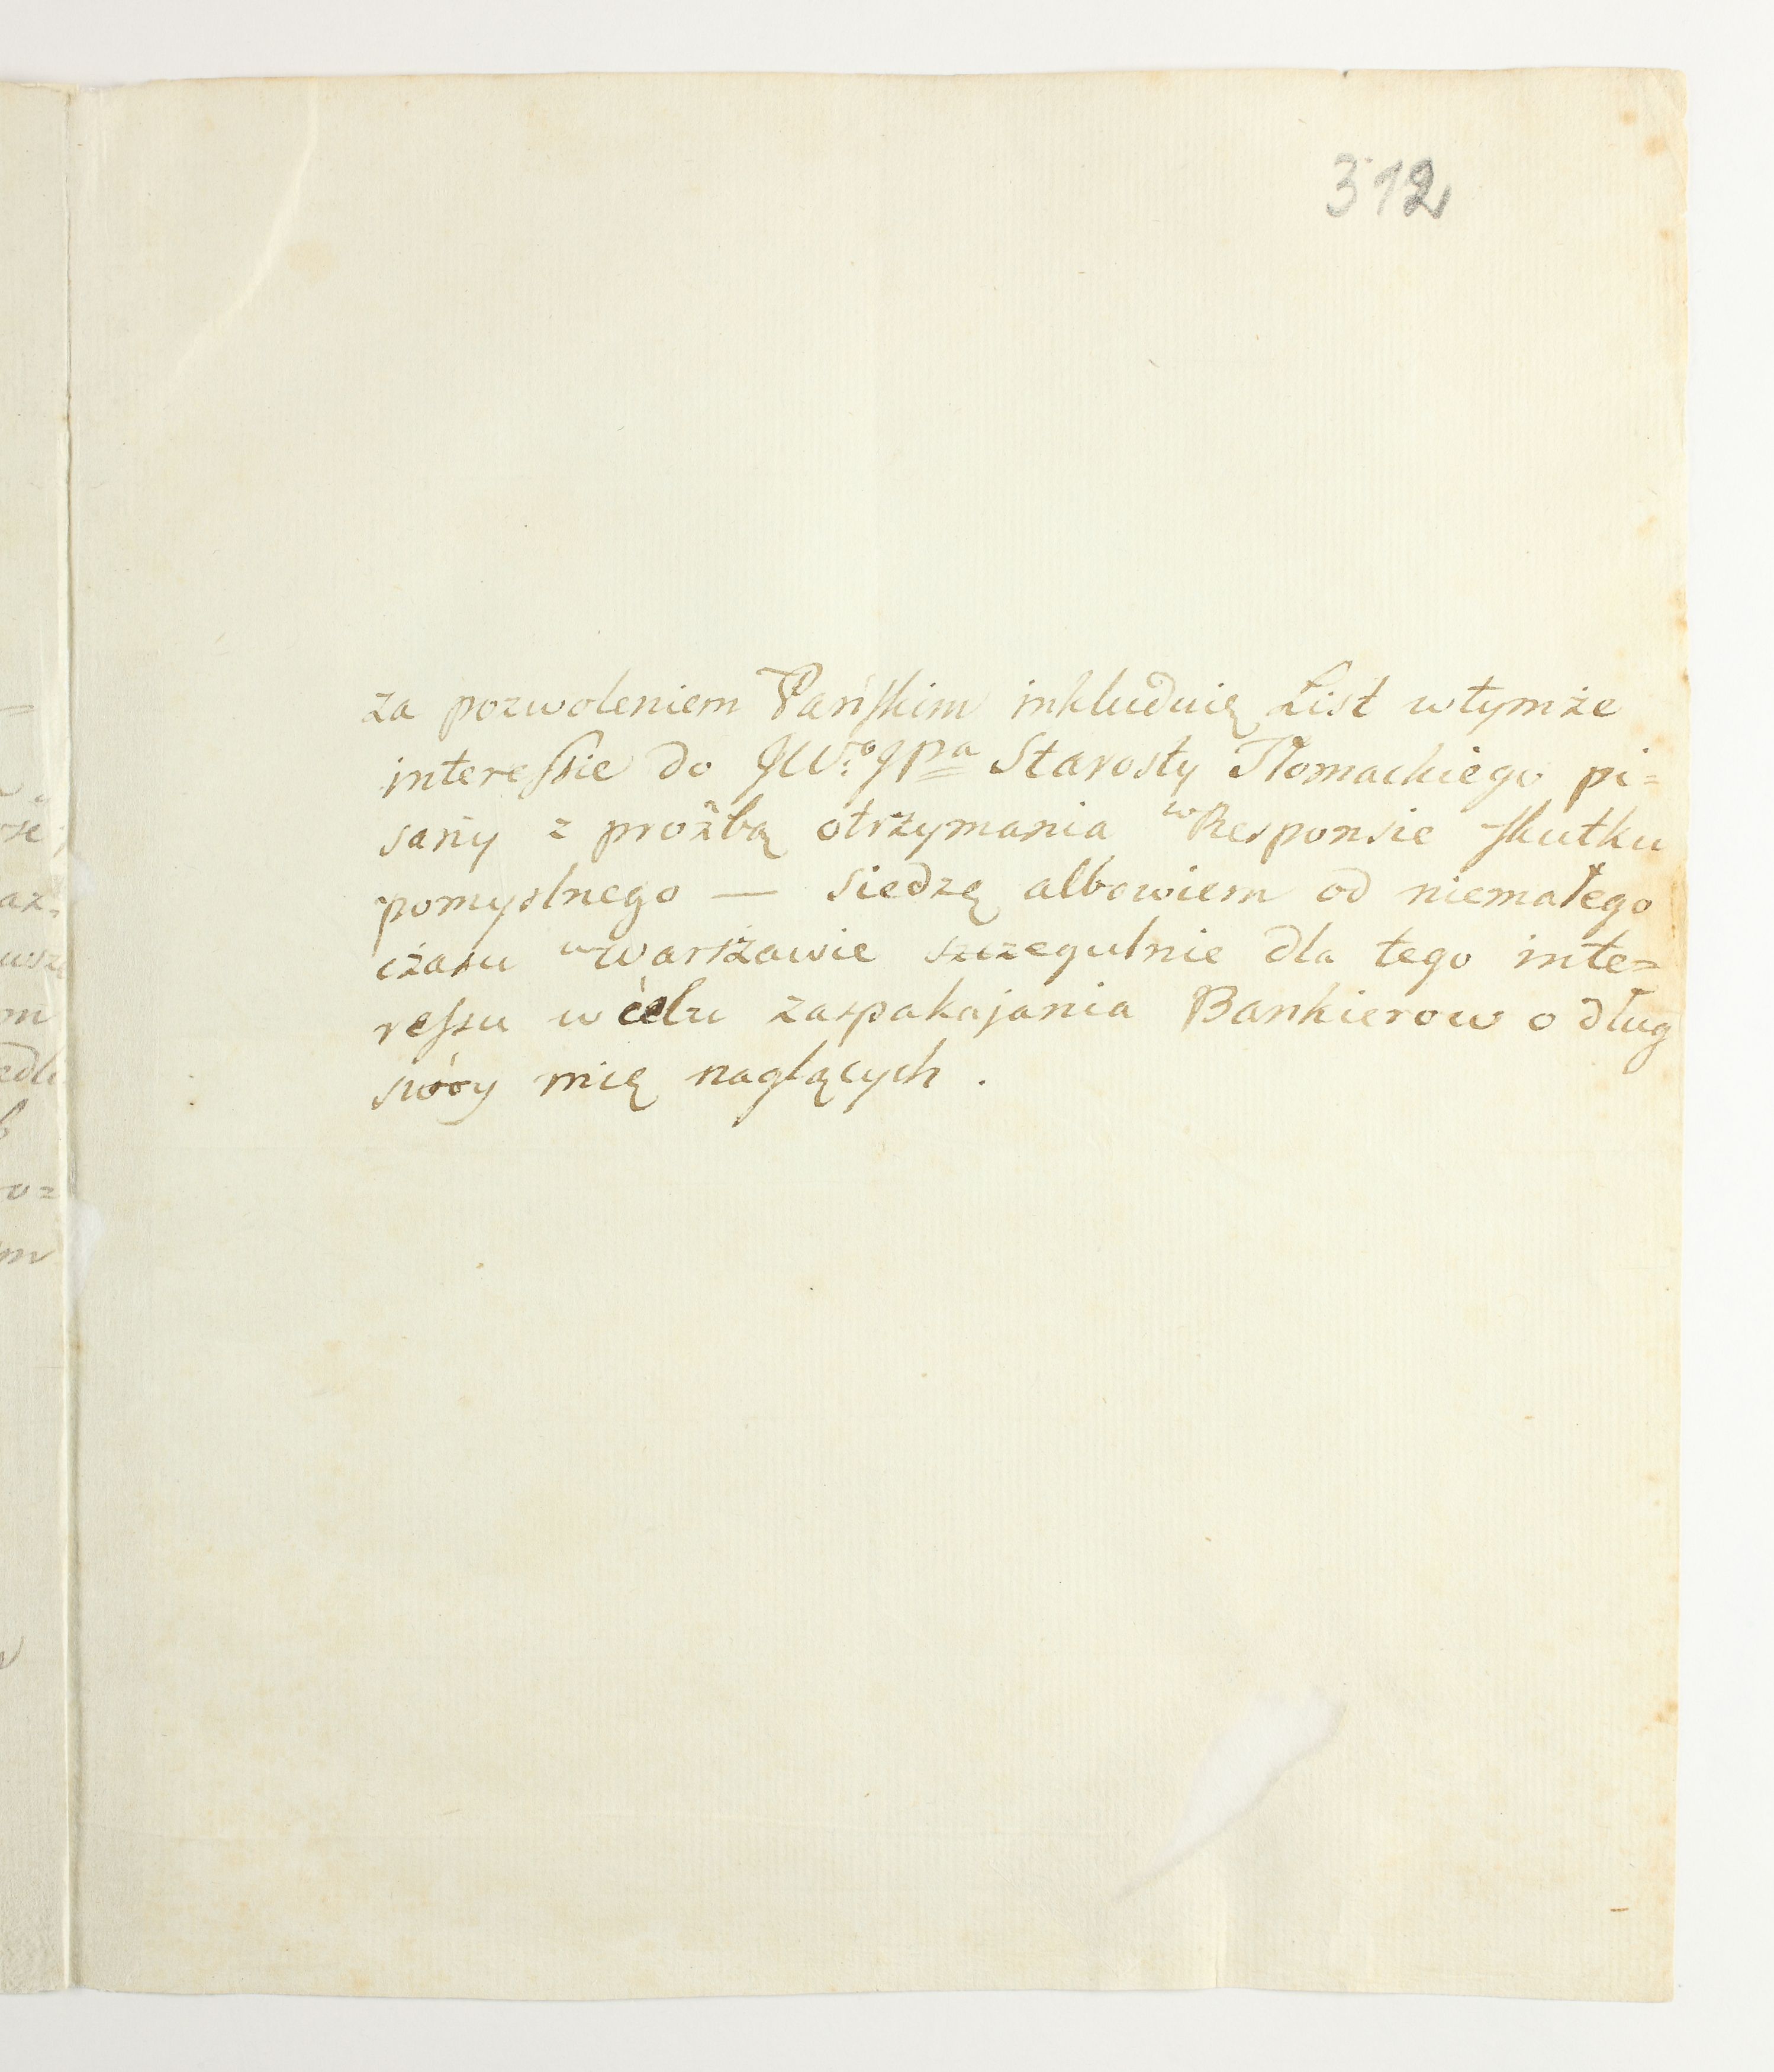 312
za pozwoleniem Pańskim inkluduię List wtymże
interessie do JW:o JPa Starosty Tłomackiego pi=
sany z proźbą otrzymania w Responsie skutku
pomyslnego — siedzę albowiem od niemałego
czasu w Warszawie szczegulnie dla tego inte=
ressu w celu zaspakajania Bankierow o dług
swoy mię naglących .